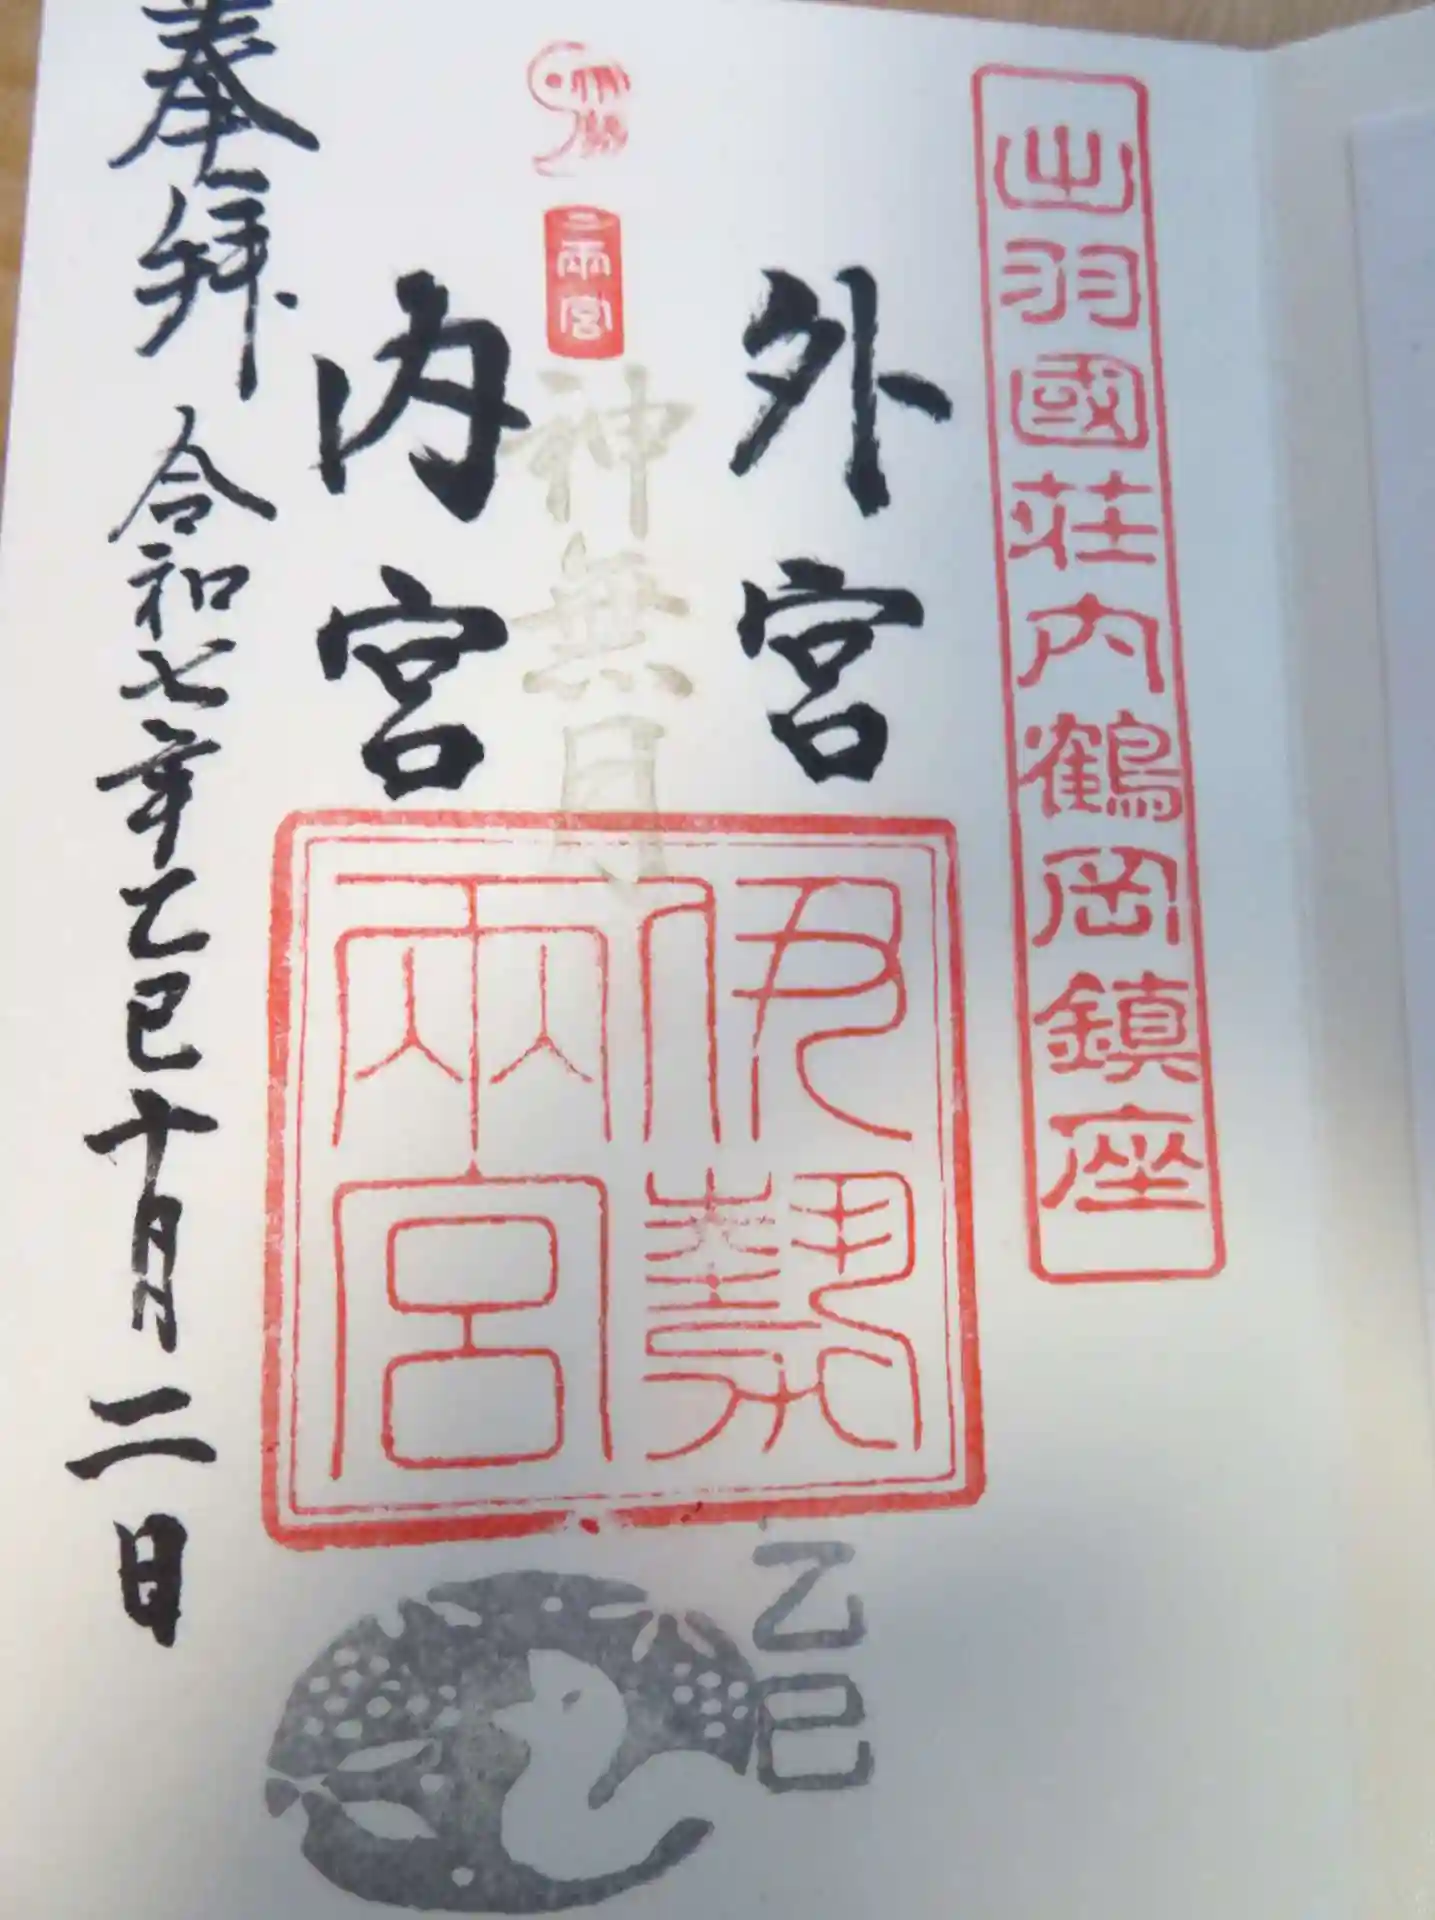 出羽國荘内鶴岡鎮座
外宮
二両宮
神無月
内宮
伊勢
両宮
奉拝 令和七年乙巳十月二日
乙巳